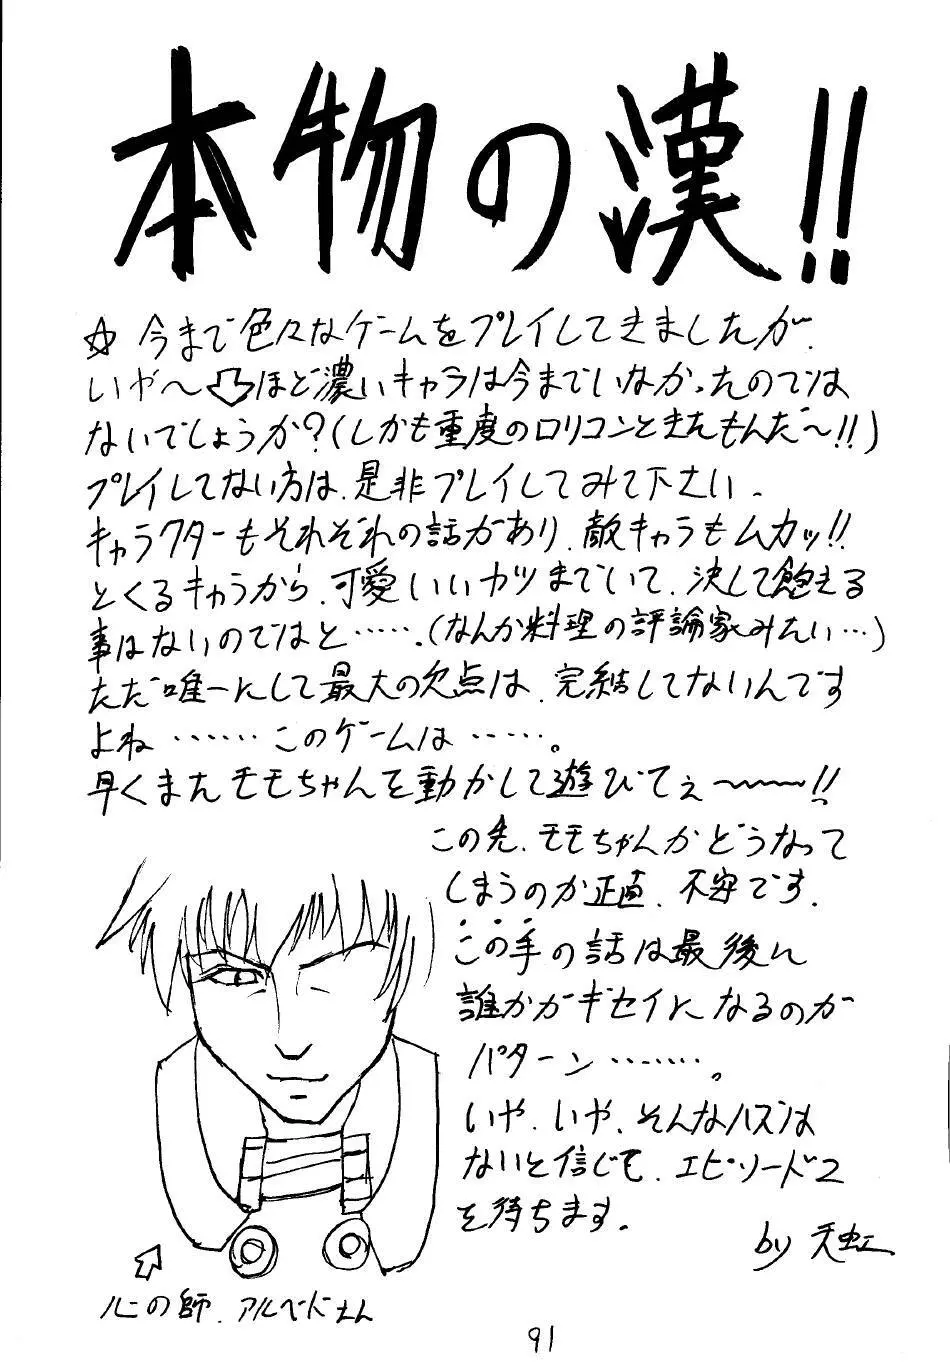 本物の漢!!
☆今まで色々なゲームをプレイしてきましたが、
いや〜⇩ほど濃いキャラは今までいなかったのでは
ないでしょうか?(しかも重度のロリコンときたもんだ〜!!)
プレイしてない方は、是非プレイしてみて下さい。
キャラクターもそれぞれの話があり、敵キャラもムカッ!!
とくるキャラから、可愛いいヤツまでいて、決して飽える
事はないのではと……。(なんか料理の評論家みたい…)
ただ唯一にして最大の欠点は、完結してないんです
よね……このゲームは……。
早くまたモモちゃんを動かして遊びてぇ〜〜〜!!
この先、モモちゃんがどうなって
しまうのか正直、不安です。
この手の話は最後に
誰かがギセイになるのが
パターン…….。
いや、いや、そんなハズは
ないと信じて、エピソード2
を待ちます。
by 天虹
心の師、アルベドさん
91